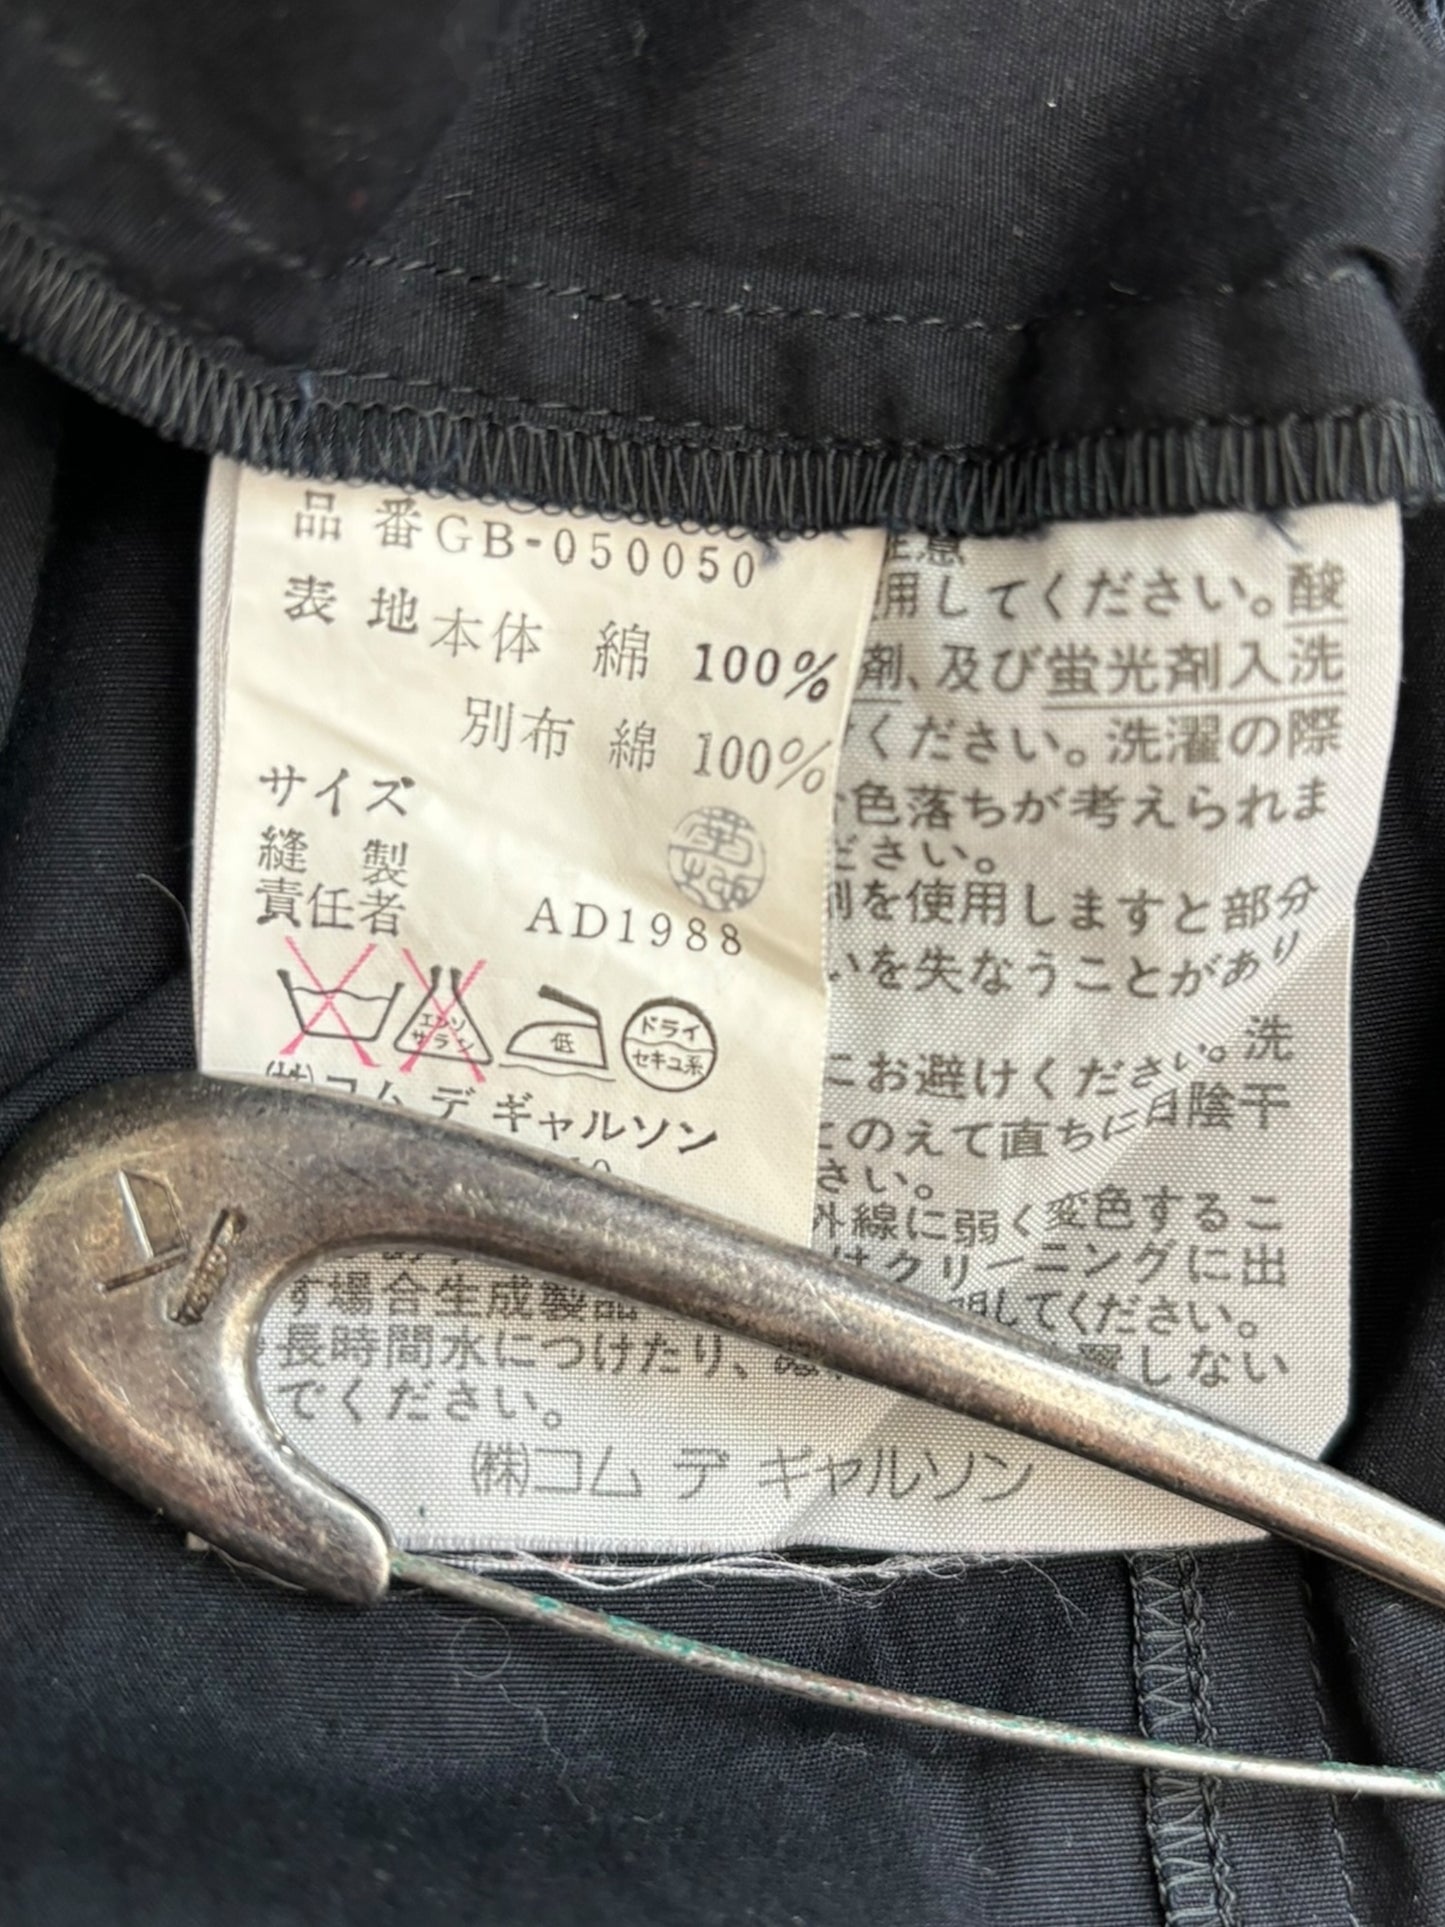 品 番 GB-050050
表 地 本体 綿 100%
別布 綿 100%
サイズ
縫 製
責任者
AD1988
エンソ
サラシ
低
ドライ
セキユ系
(株)コム デ ギャルソン
用してください。酸
剤、及び蛍光剤入洗
ください。洗濯の際
色落ちが考えられま
ださい。
剤を使用しますと部分
いを失なうことがあり
にお避けください。洗
とのえて直ちに日陰干
さい。
外線に弱く変色するこ
はクリーニングに出
す場合生成製品 明してください。
長時間水につけたり、 置しない
でください。
(株)コム デ ギャルソン